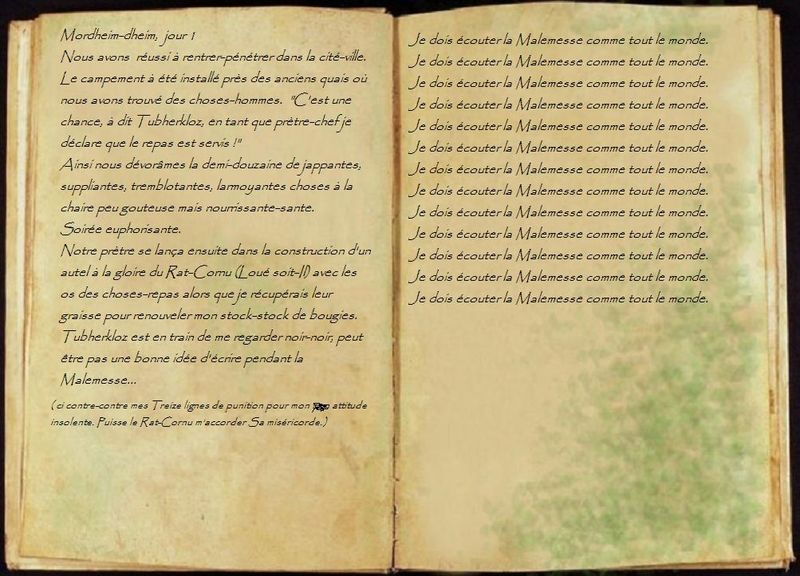 Mordheim-dheim, jour 1
Nous avons réussi à rentrer-pénétrer dans la cité-ville.
Le campement à été installé près des anciens quais où
nous avons trouvé des choses-hommes. "C'est une
chance, à dit Tubherkloz, en tant que prètre-chef je
déclare que le repas est servis !"
Ainsi nous dévorâmes la demi-douzaine de jappantes,
suppliantes, tremblotantes, larmoyantes choses à la
chaire peu gouteuse mais nourrissante-sante.
Soirée euphorisante.
Notre prètre se lança ensuite dans la construction d'un
autel à la gloire du Rat-Cornu (Loué soit-Il) avec les
os des choses-repas alors que je récupérais leur
graisse pour renouveler mon stock-stock de bougies.
Tubherkloz est en train de me regarder noir-noir, peut
être pas une bonne idée d'écrire pendant la
Malemesse...
(ci contre-contre mes Treize lignes de punition pour mon attitude
insolente. Puisse le Rat-Cornu m'accorder Sa miséricorde.)
Je dois écouter la Malemesse comme tout le monde.
Je dois écouter la Malemesse comme tout le monde.
Je dois écouter la Malemesse comme tout le monde.
Je dois écouter la Malemesse comme tout le monde.
Je dois écouter la Malemesse comme tout le monde.
Je dois écouter la Malemesse comme tout le monde.
Je dois écouter la Malemesse comme tout le monde.
Je dois écouter la Malemesse comme tout le monde.
Je dois écouter la Malemesse comme tout le monde.
Je dois écouter la Malemesse comme tout le monde.
Je dois écouter la Malemesse comme tout le monde.
Je dois écouter la Malemesse comme tout le monde.
Je dois écouter la Malemesse comme tout le monde.